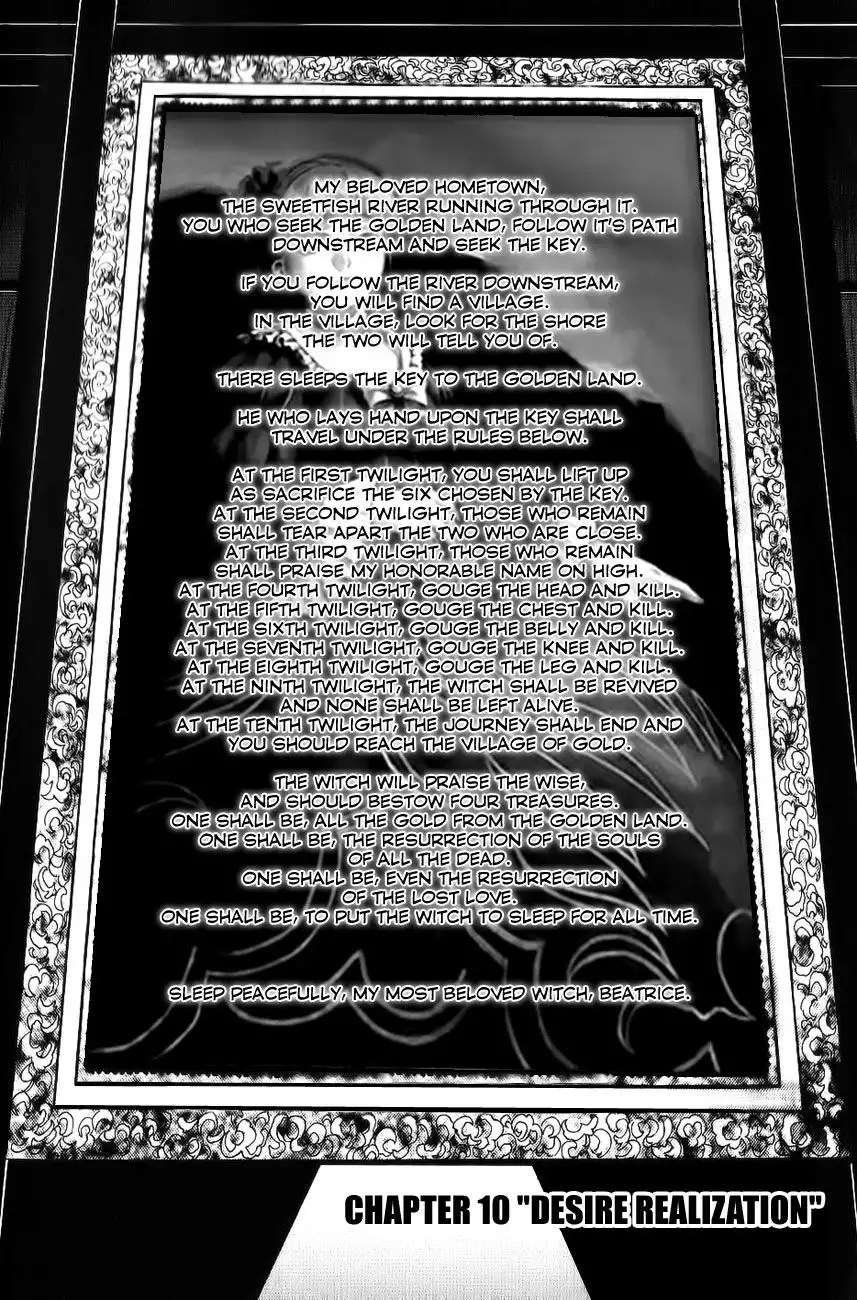 MY BELOVED HOMETOWN,
THE SWEETFISH RIVER RUNNING THROUGH IT.
YOU WHO SEEK THE GOLDEN LAND, FOLLOW IT'S PATH
DOWNSTREAM AND SEEK THE KEY.
IF YOU FOLLOW THE RIVER DOWNSTREAM,
YOU WILL FIND A VILLAGE.
IN THE VILLAGE, LOOK FOR THE SHORE
THE TWO WILL TELL YOU OF.
THERE SLEEPS THE KEY TO THE GOLDEN LAND.
HE WHO LAYS HAND UPON THE KEY SHALL
TRAVEL UNDER THE RULES BELOW.
AT THE FIRST TWILIGHT, YOU SHALL LIFT UP
AS SACRIFICE THE SIX CHOSEN BY THE KEY.
AT THE SECOND TWILIGHT, THOSE WHO REMAIN
SHALL TEAR APART THE TWO WHO ARE CLOSE.
AT THE THIRD TWILIGHT, THOSE WHO REMAIN
SHALL PRAISE MY HONORABLE NAME ON HIGH.
AT THE FOURTH TWILIGHT, GOUGE THE HEAD AND KILL.
AT THE FIFTH TWILIGHT, GOUGE THE CHEST AND KILL.
AT THE SIXTH TWILIGHT, GOUGE THE BELLY AND KILL.
AT THE SEVENTH TWILIGHT, GOUGE THE KNEE AND KILL.
AT THE EIGHTH TWILIGHT, GOUGE THE LEG AND KILL.
AT THE NINTH TWILIGHT, THE WITCH SHALL BE REVIVED
AND NONE SHALL BE LEFT ALIVE.
AT THE TENTH TWILIGHT, THE JOURNEY SHALL END AND
YOU SHOULD REACH THE VILLAGE OF GOLD.
THE WITCH WILL PRAISE THE WISE,
AND SHOULD BESTOW FOUR TREASURES.
ONE SHALL BE, ALL THE GOLD FROM THE GOLDEN LAND.
ONE SHALL BE, THE RESURRECTION OF THE SOULS
OF ALL THE DEAD.
ONE SHALL BE, EVEN THE RESURRECTION
OF THE LOST LOVE.
ONE SHALL BE, TO PUT THE WITCH TO SLEEP FOR ALL TIME.
SLEEP PEACEFULLY, MY MOST BELOVED WITCH, BEATRICE.
CHAPTER 10 "DESIRE REALIZATION"